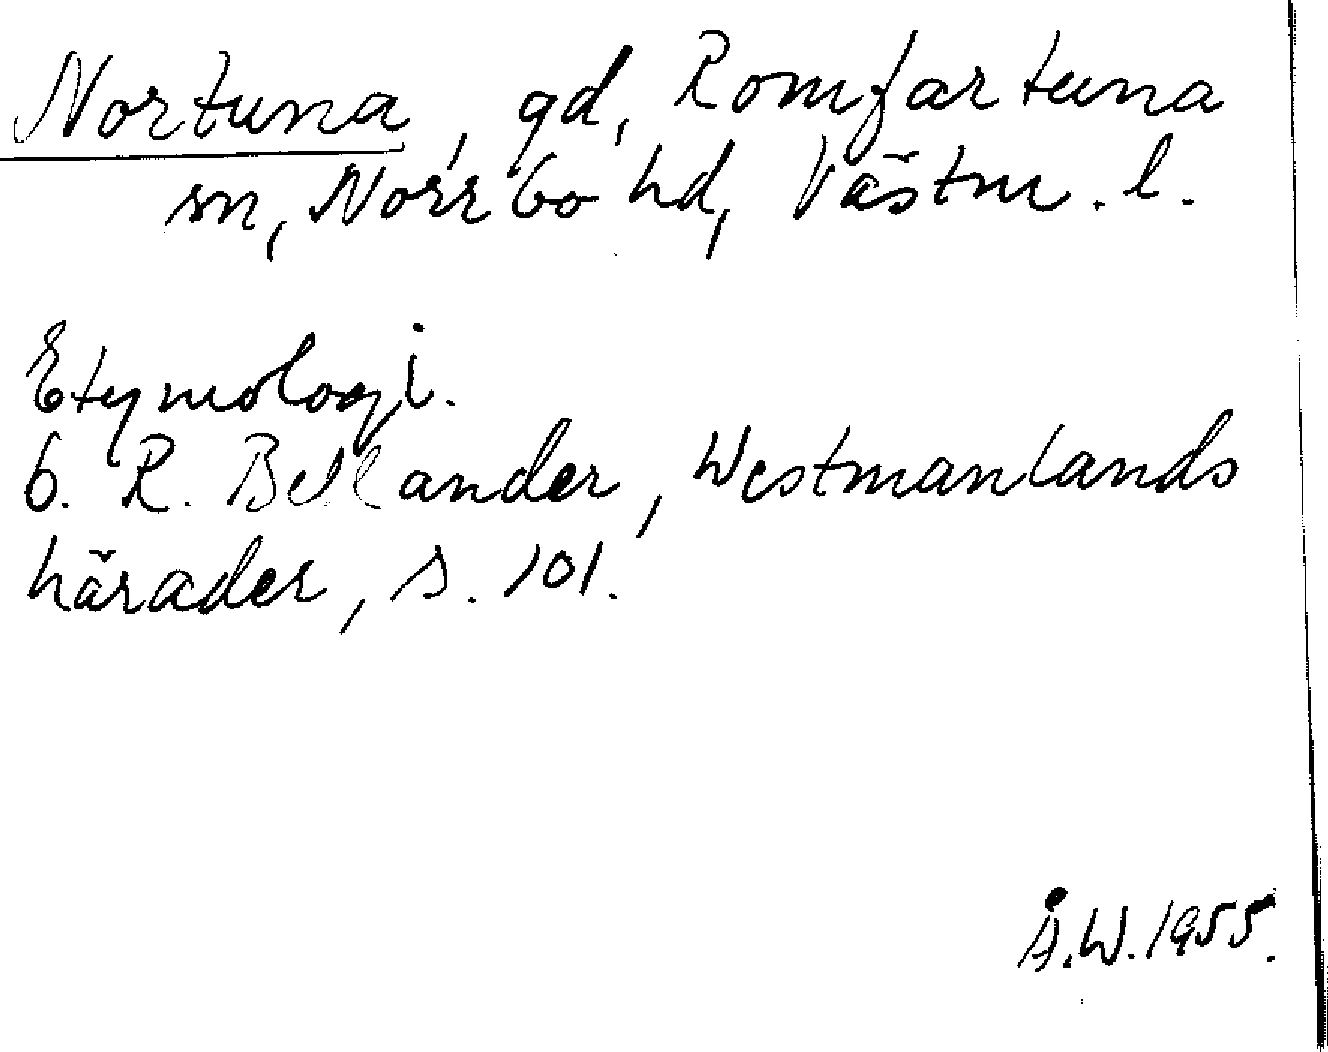 Nortuna, gd, Romfartuna
sn, Norrbo hd, Västm. l.
Etymologi.
C. R. Bellander, Westmanlands
härader, s. 101.
Å.W. 1955.